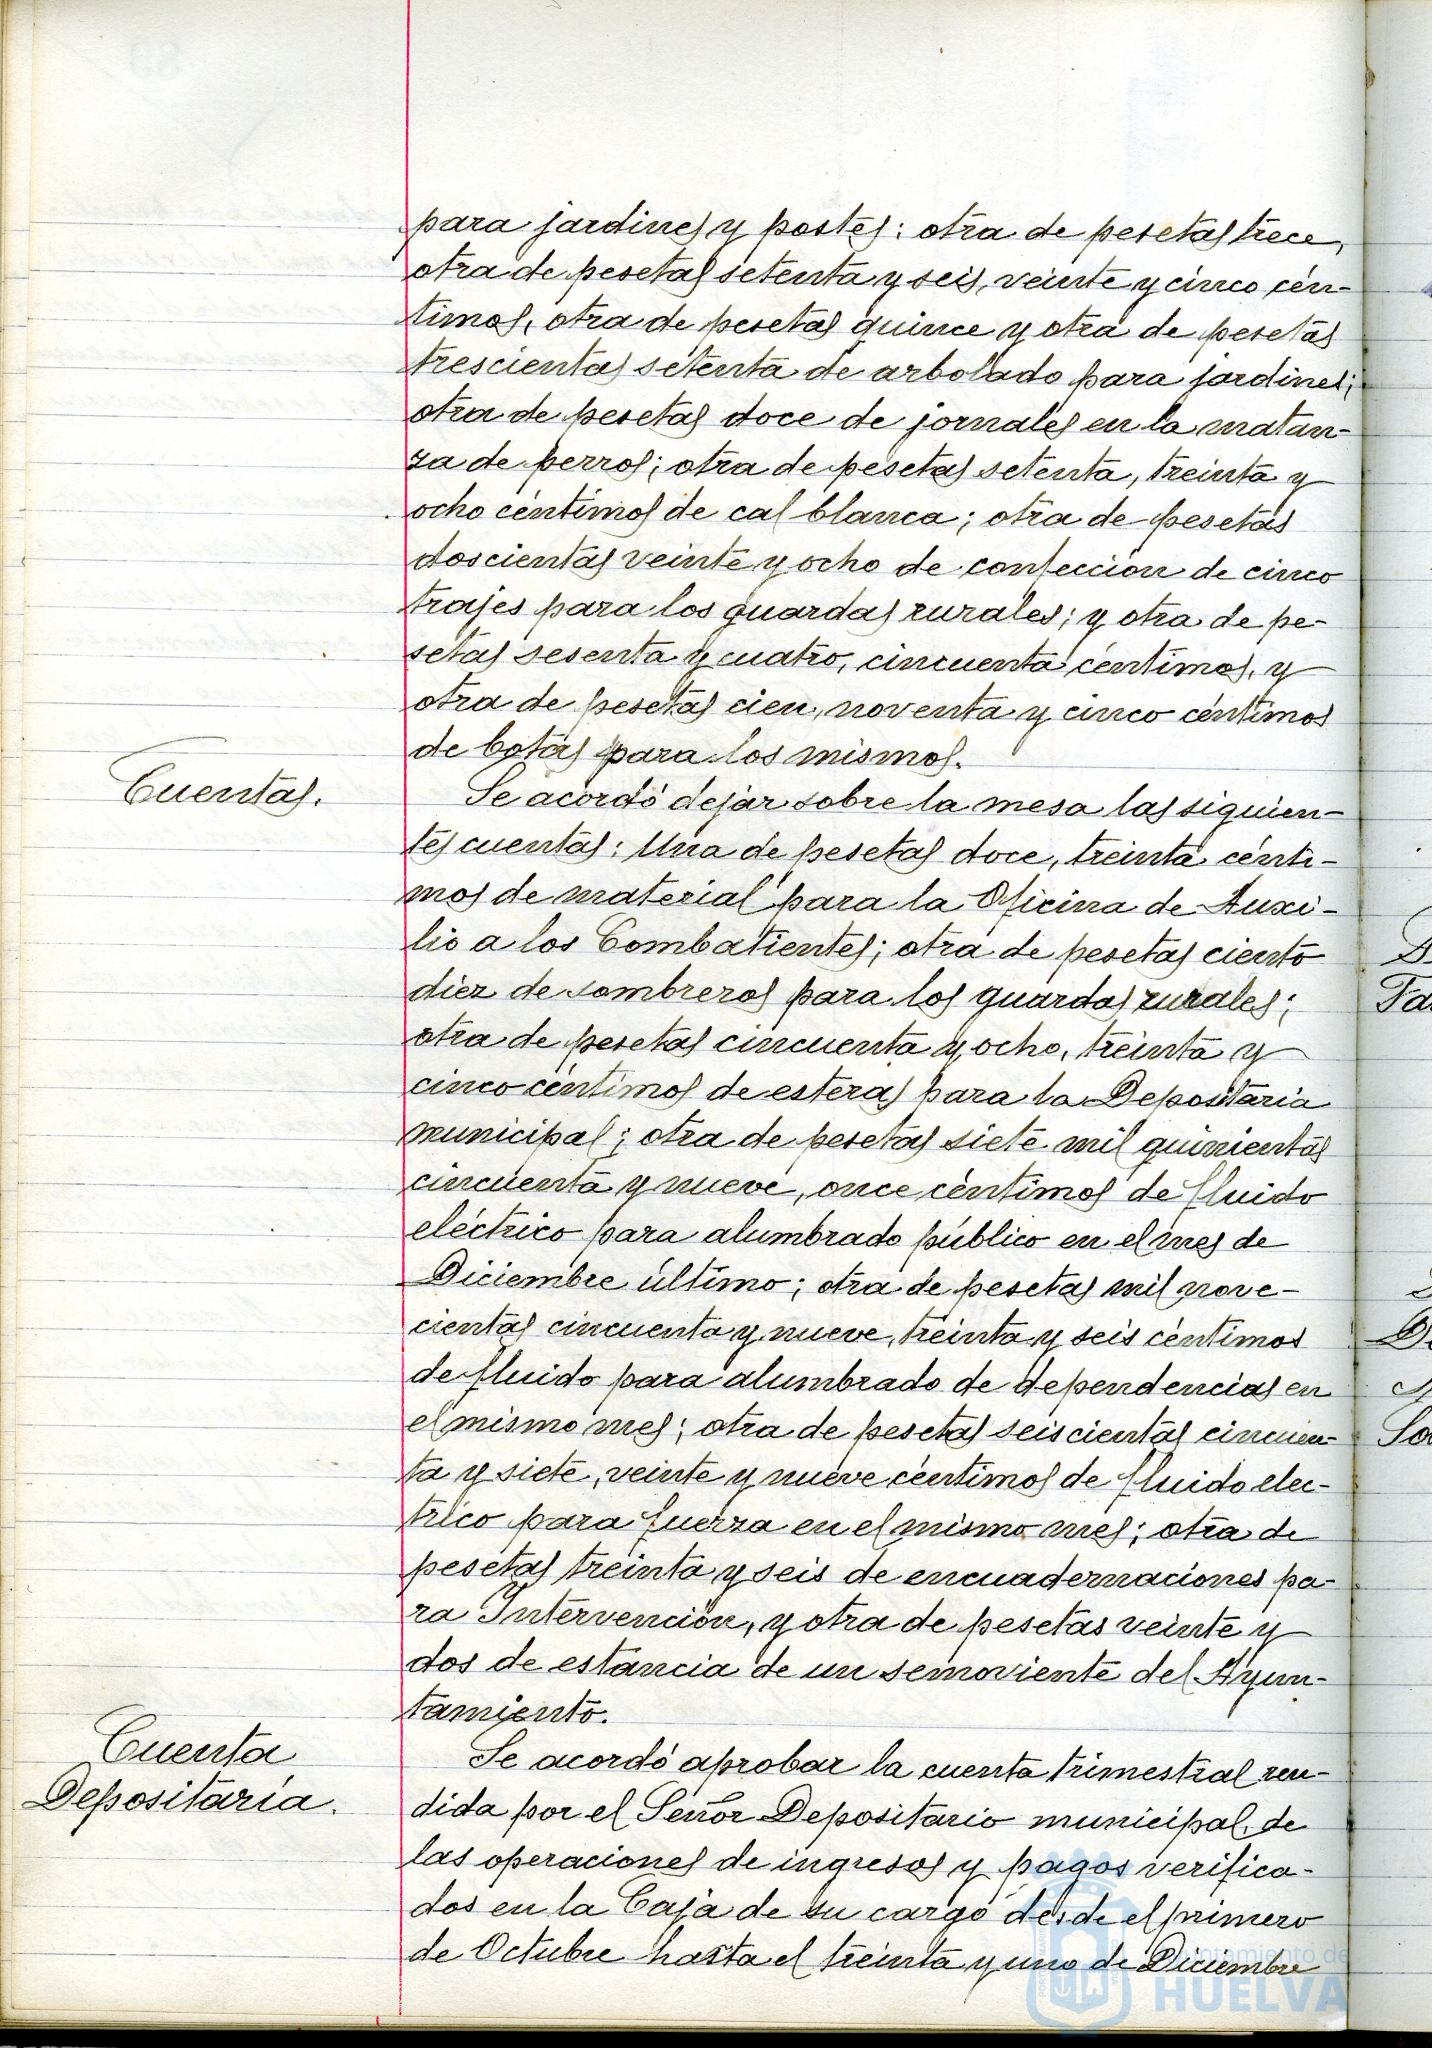 para jardines y postes; otra de pesetas trece,
otra de pesetas setenta y seis, veinte y cinco cén-
timos, otra de pesetas quince y otra de pesetas
trescientas setenta de arbolado para jardines;
otra de pesetas doce de jornales en la matan-
za de perros; otra de pesetas setenta, treinta y
ocho céntimos de cal blanca; otra de pesetas
doscientas veinte y ocho de confección de cinco
trajes para los guardas rurales; y otra de pe-
setas sesenta y cuatro, cincuenta céntimos, y
otra de pesetas cien, noventa y cinco céntimos
de botas para los mismos.
Cuentas.
Se acordó dejar sobre la mesa las siguien-
tes cuentas: Una de pesetas doce, treinta cénti-
mos de material para la Oficina de Auxi-
lio a los Combatientes; otra de pesetas ciento
diez de sombreros para los guardas rurales;
otra de pesetas cincuenta y ocho, treinta y
cinco céntimos de esteras para la Depositaria
municipal; otra de pesetas siete mil quinientas
cincuenta y nueve, once céntimos de fluido
eléctrico para alumbrado público en el mes de
Diciembre último; otra de pesetas mil nove-
cientas cincuenta y nueve, treinta y seis céntimos
de fluido para alumbrado de dependencias en
el mismo mes; otra de pesetas seiscientas cincuen-
ta y siete, veinte y nueve céntimos de fluido elec-
trico para fuerza en el mismo mes; otra de
pesetas treinta y seis de encuadernaciones pa-
ra Intervención, y otra de pesetas veinte y
dos de estancia de un semoviente del Ayun-
tamiento.
Cuenta
Depositaría.
Se acordó aprobar la cuenta trimestral ren-
dida por el Señor Depositario municipal, de
las operaciones de ingresos y pagos verifica-
dos en la Caja de su cargo desde el primero
de Octubre hasta el treinta y uno de Diciembre
Ayuntamiento de
HUELVA